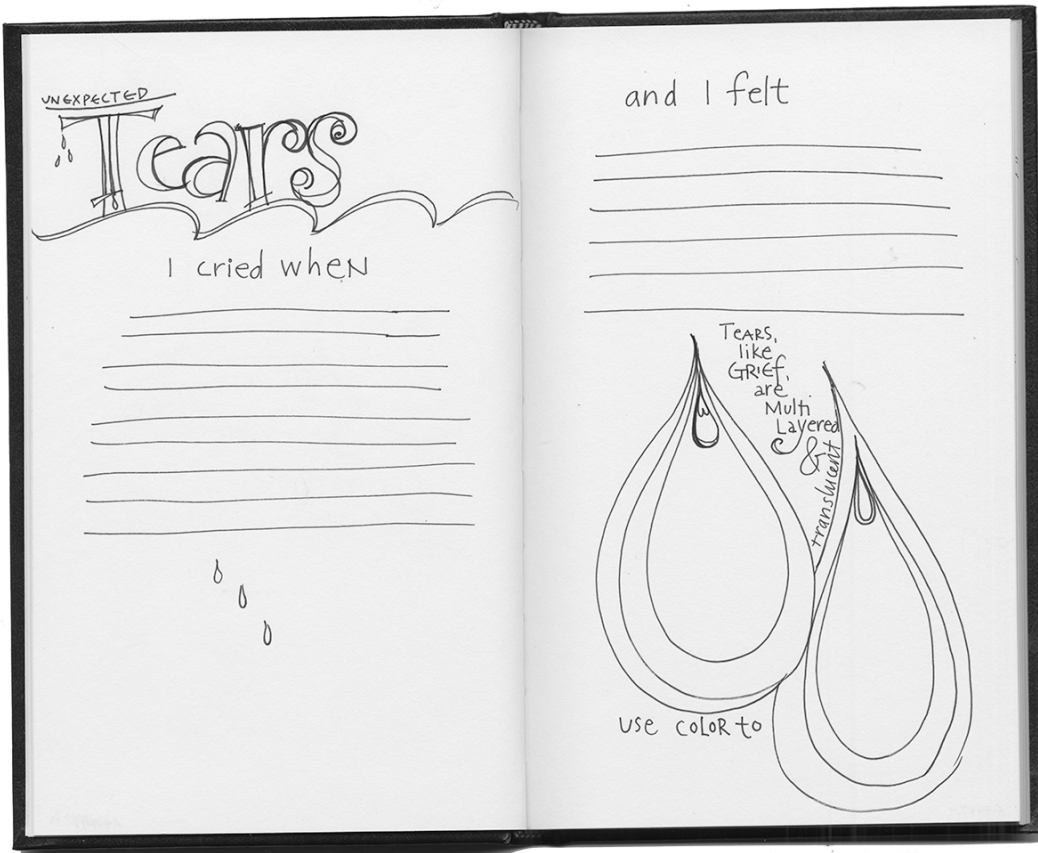 UNEXPECTED
Tears
I cried when
and I felt
TEARS,
like
GRIEf,
are
Multi
Layered
&
translucent
use COLOR to